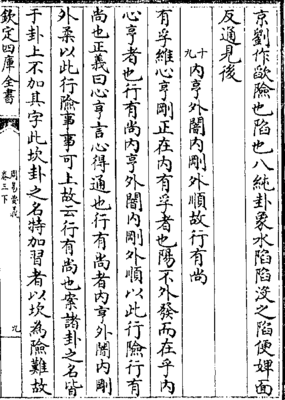 京劉作欿險也陷也八純卦象水陷陷沒之陷便婢面
反通見後
十九 內亨外闇內剛外順故行有尚
有孚維心亨剛正在內有孚者也陽不外發而在乎內
心亨者也行有尚內亨外闇內剛外順以此行險行有
尚也正義曰心亨言心得通也行有尚者內亨外闇內剛
外柔以此行險事事可上故云行有尚也案諸卦之名皆
于卦上不加其字此坎卦之名特加習者以坎為險難故
欽定四庫全書
周易要義
卷三下
九